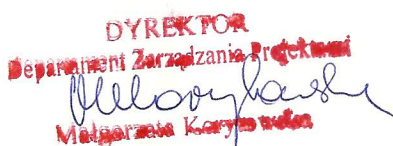 DYREKTOR
Departament Zarządzania Projektami
Małgorzata